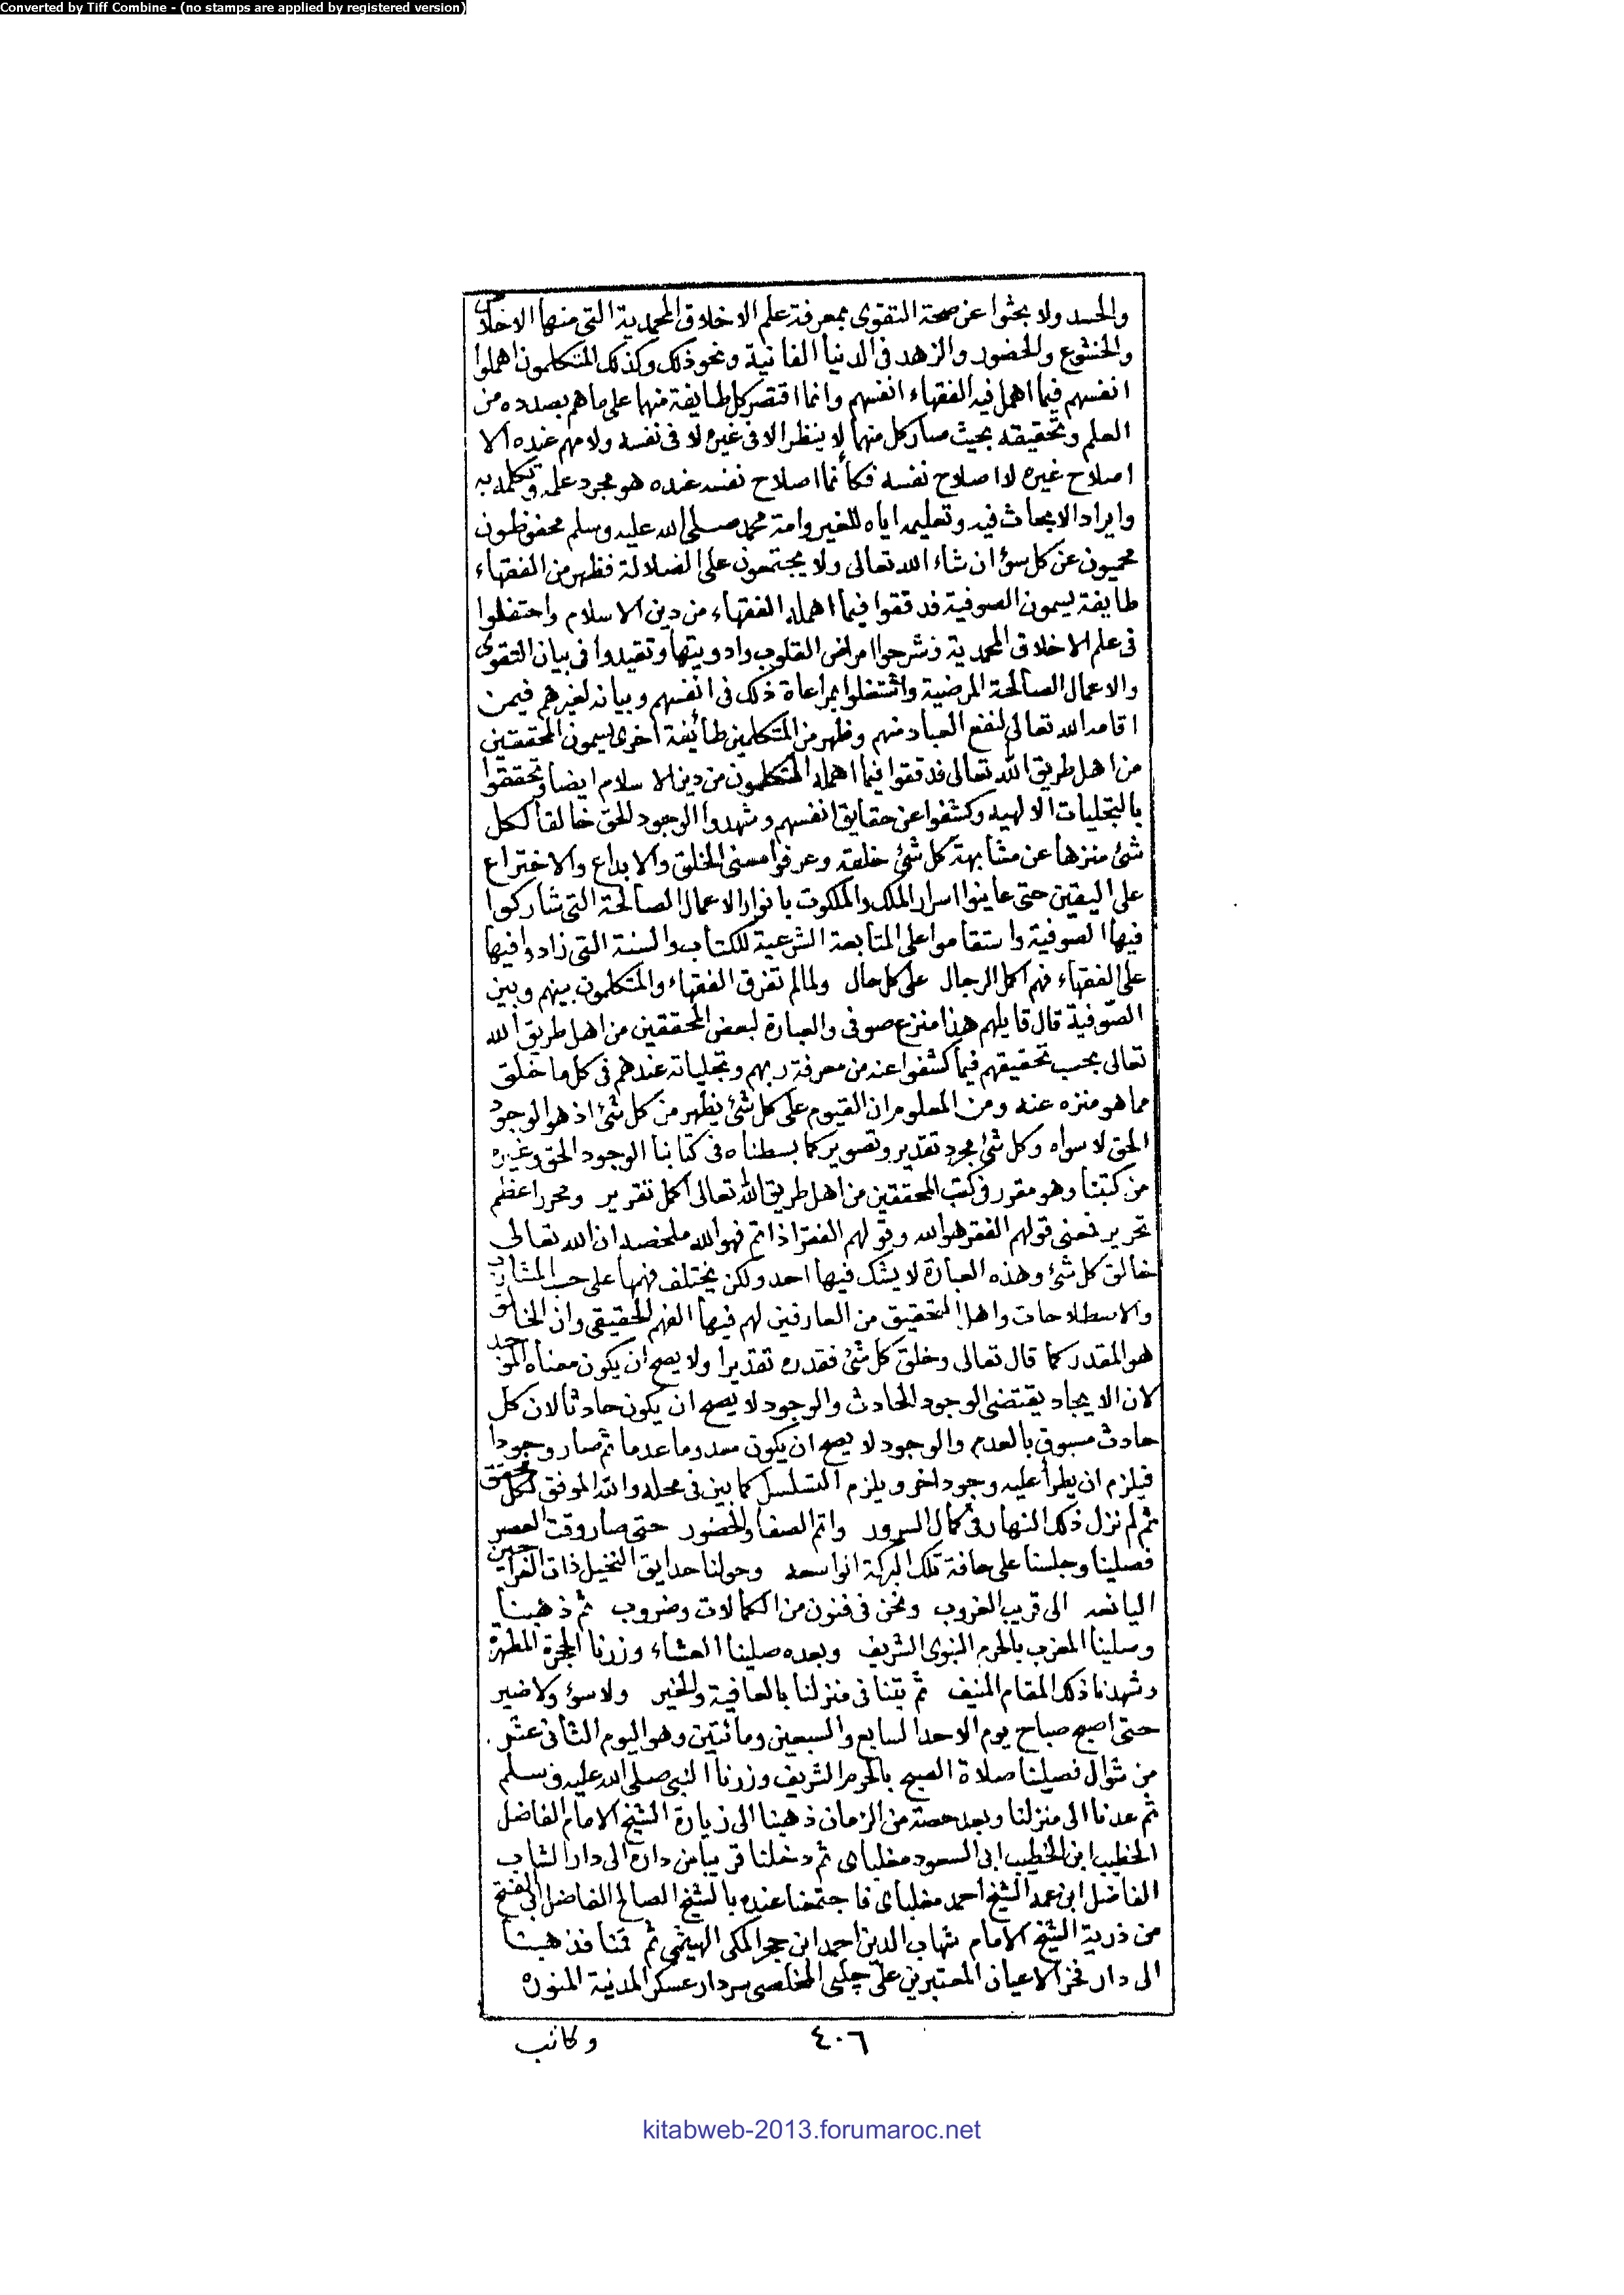 Converted by Tiff Combine - (no stamps are applied by registered version)
والحسد ولا بحثوا عن صحة التقوى بمعرفة علم الاخلاق المحمدية التي منها الاخلاص
والخشوع والحضور والزهد في الدنيا الفانية ونحو ذلك وكذلك المتكلمون اهملوا
انفسهم فيما اهمل فيه الفقهاء انفسهم وانما اقتصر كل طايفة منها على ما هم بصدده من
العلم وتحقيقه بحيث صار كل منها لا ينظر الا في غيره لا في نفسه ولا مهم عنده الا
اصلاح غيره لا اصلاح نفسه فكأنما اصلاح نفسه عنده هو مجرد علمه وتكلمه به
وايراد الابحاث فيه وتعليمه اياه للغير وامة محمد صلى الله عليه وسلم محفوظون
محميون عن كل سؤ ان شاء الله تعالى ولا يجتمعون على الضلالة فظهر من الفقهاء
طايفة يسمون الصوفية فدققوا فيما اهمله الفقهاء من دين الاسلام واحتفلوا
في علم الاخلاق المحمدية فشرحوا امراض القلوب وادويتها وتقيدوا في بيان التقوى
والاعمال الصالحة المرضية واشتغلوا بمراعاة ذلك في انفسهم وبيانه لغيرهم فيمن
اقامه الله تعالى لنفع العباد منهم وظهر من المتكلمين طائفة اخرى يسمون المحققين
من اهل طريق الله تعالى فدققوا فيما اهمله المتكلمون من دين الاسلام ايضا وتحققوا
بالتجليات الالهيه وكشفوا عن حقايق انفسهم وشهدوا الوجود للحق خالقا لكل
شئ منزها عن مشابهة كل شئ خلقه وعرفوا معنى الخلق والابداع والاختراع
على اليقين حتى عاينوا اسرار الملك والملكوت بانوار الاعمال الصالحة التي شاركوا
فيها الصوفية واستقاموا على المتابعة الشرعية للكتاب والسنة التي زادوا فيها
على الفقهاء فهم اكمل الرجال على كل حال ولما لم تفرق الفقهاء والمتكلمون بينهم وبين
الصوفية قال قايلهم هذا منزع صوفي والعبارة لبعض المحققين من اهل طريق الله
تعالى بحسب تحقيقهم فيما كشفوا عنه من معرفة ربهم وتجلياته عندهم في كل ما خلق
مما هو منزه عنه ومن المعلوم ان القيوم على كل شئ يظهر من كل شئ اذ هو الوجود
الحق لا سواه وكل شئ مجرد تقدير وتصوير كما بسطناه في كتابنا الوجود الحق وغيره
من كتبنا وهو مقرر في كتب المحققين من اهل طريق الله تعالى اكمل تقرير ومحرر اعظم
تحرير فمعنى قولهم الفقر هو الله وقولهم الفقر اذا تم فهو الله ملخصه ان الله تعالى
خالق كل شئ وهذه العبارة لا يشك فيها احد ولكن يختلف فهمها على حسب المشارب
والاصطلاحات واهل التحقيق من العارفين لهم فيها الفهم الحقيقى وان الخالق
هو المقدر كما قال تعالى وخلق كل شئ فقدره تقديرا ولا يصح ان يكون معناه الموجد
لان الايجاد يقتضى الوجود الحادث والوجود لا يصح ان يكون حادثا لان كل
حادث مسبوق بالعدم والوجود لا يصح ان يكون معدوما عدما ثم صار وجودا
فيلزم ان يطرأ عليه وجود اخر ويلزم التسلسل كما بين في محله والله الموفق لكل محقق
ثم لم نزل ذلك النهار في كمال السرور واتم الصفا والحضور حتى صار وقت العصر
فصلينا وجلسنا على حافة تلك البركة الواسعه وحولنا حدايق النخيل ذات الفراجين
اليانعه الى قريب الغروب ونحن في فنون من الكمالات وضروب ثم ذهبنا
وصلينا المغرب بالحرم النبوى الشريف وبعده صلينا العشاء وزرنا الحجرة المطهرة
وشهدنا ذلك المقام المنيف ثم بتنا في منزلنا بالعافية والخير ولا سؤ ولا ضير
حتى اصبح صباح يوم الاحد السابع والسبعين ومائتين وهو اليوم الثانى عشر
من شوال فصلينا صلاة الصبح بالحرم الشريف وزرنا النبي صلى الله عليه وسلم
ثم عدنا الى منزلنا وبعد حصة من الزمان ذهبنا الى زيارة الشيخ الامام الفاضل
الخطيب ابن الخطيب ابى السعود مغلباى ثم دخلنا قريبا من داره الى دار الشاب
الفاضل ابن عمه الشيخ احمد مغلباى فاجتمعنا عنده بالشيخ الصالح الفاضل ابى الفتح
من ذرية الشيخ الامام شهاب الدين احمد ابن حجر المكى الهيثمى ثم قمنا فذهبنا
الى دار فخر الاعيان المعتبرين على چلبى المخلصى سردار عسكر المدينة المنوره
وكاتب
٤٠٦
kitabweb-2013.forumaroc.net